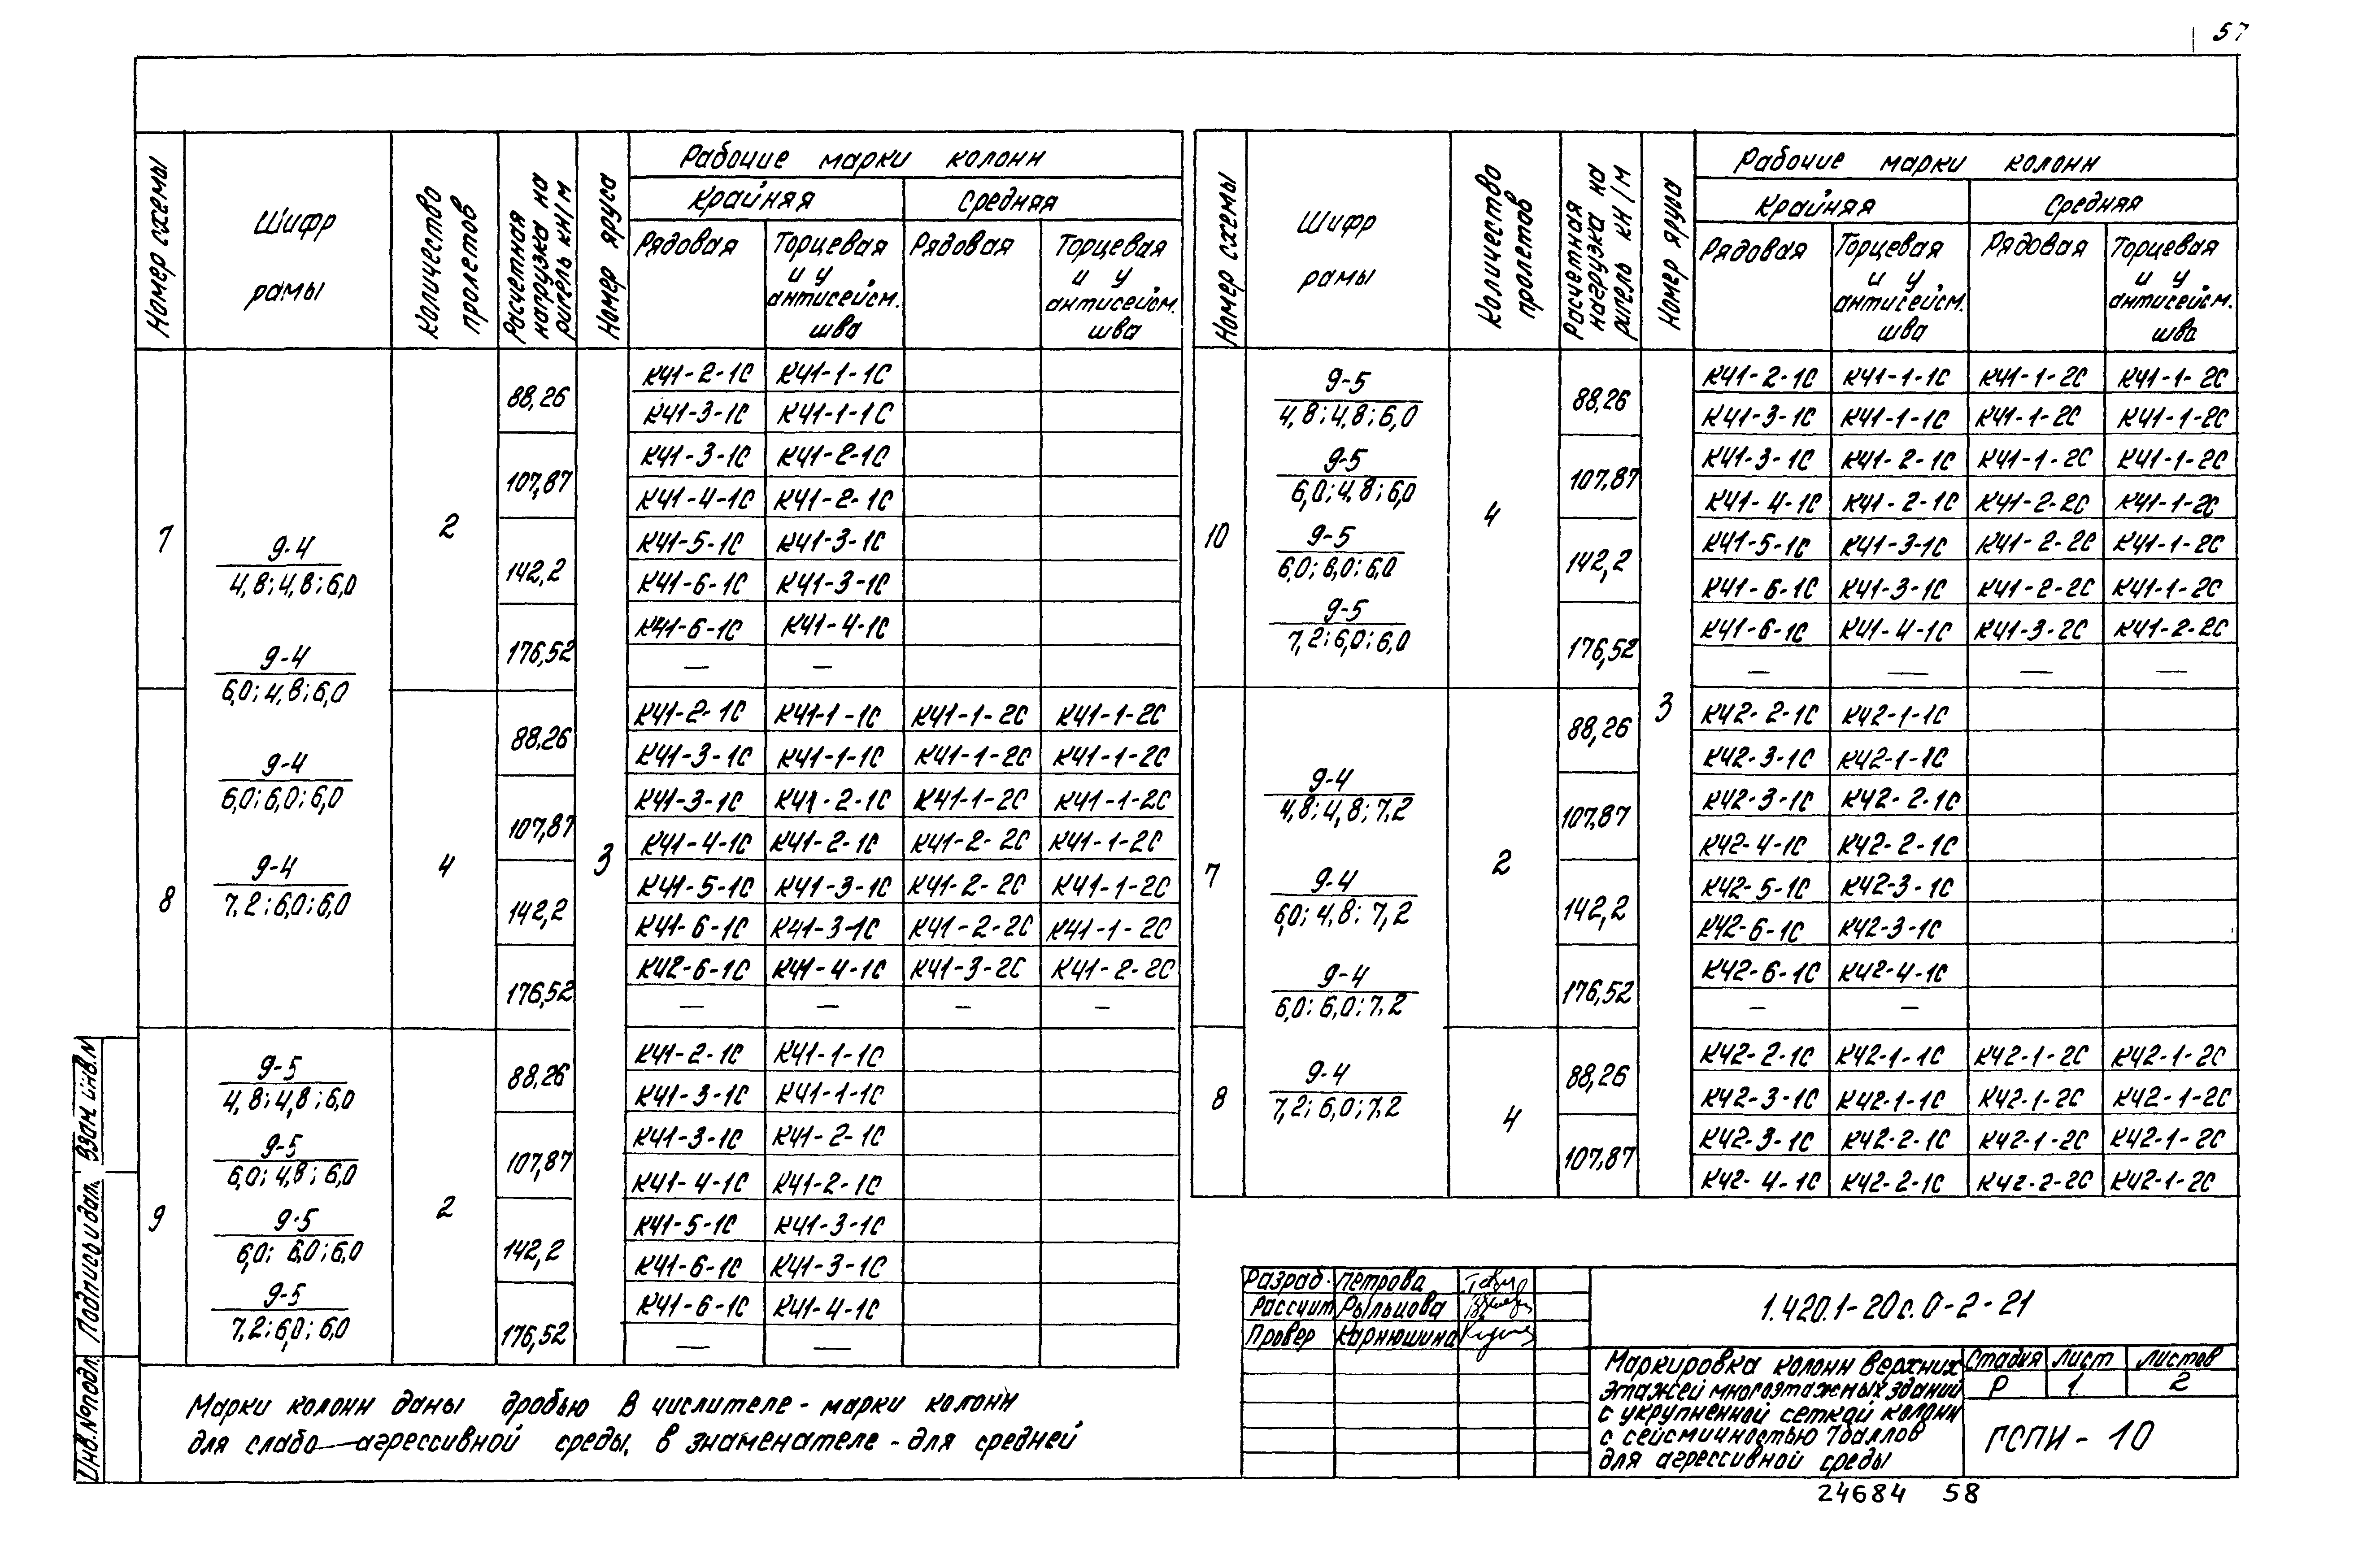 57
Номер схемы
Шифр рамы
Количество пролетов
Расчетная нагрузка на ригель кН/м
Номер яруса
Рабочие марки колонн
Крайняя
Средняя
Рядовая
Торцевая и у антисейсм. шва
Рядовая
Торцевая и у антисейсм. шва
7
9-4
4,8; 4,8; 6,0
9-4
6,0; 4,8; 6,0
9-4
6,0; 6,0; 6,0
9-4
7,2; 6,0; 6,0
2
3
88,26
К41-2-1С К41-1-1С
К41-3-1С К41-1-1С
107,87
К41-3-1С К41-2-1С
К41-4-1С К41-2-1С
142,2
К41-5-1С К41-3-1С
К41-6-1С К41-3-1С
176,52
К41-6-1С К41-4-1С
— —
8
4
88,26
К41-2-1С К41-1-1С К41-1-2С К41-1-2С
К41-3-1С К41-1-1С К41-1-2С К41-1-2С
107,87
К41-3-1С К41-2-1С К41-1-2С К41-1-2С
К41-4-1С К41-2-1С К41-2-2С К41-1-2С
142,2
К41-5-1С К41-3-1С К41-2-2С К41-1-2С
К41-6-1С К41-3-1С К41-2-2С К41-1-2С
176,52
К42-6-1С К41-4-1С К41-3-2С К41-2-2С
— — — —
9
9-5
4,8; 4,8; 6,0
9-5
6,0; 4,8; 6,0
9-5
6,0; 6,0; 6,0
9-5
7,2; 6,0; 6,0
2
88,26
К41-2-1С К41-1-1С
К41-3-1С К41-1-1С
107,87
К41-3-1С К41-2-1С
К41-4-1С К41-2-1С
142,2
К41-5-1С К41-3-1С
К41-6-1С К41-3-1С
176,52
К41-6-1С К41-4-1С
— —
Номер схемы
Шифр рамы
Количество пролетов
Расчетная нагрузка на ригель кН/м
Номер яруса
Рабочие марки колонн
Крайняя
Средняя
Рядовая
Торцевая и у антисейсм. шва
Рядовая
Торцевая и у антисейсм. шва
10
9-5
4,8; 4,8; 6,0
9-5
6,0; 4,8; 6,0
9-5
6,0; 6,0; 6,0
9-5
7,2; 6,0; 6,0
4
3
88,26
К41-2-1С К41-1-1С К41-1-2С К41-1-2С
К41-3-1С К41-1-1С К41-1-2С К41-1-2С
107,87
К41-3-1С К41-2-1С К41-1-2С К41-1-2С
К41-4-1С К41-2-1С К41-2-2С К41-1-2С
142,2
К41-5-1С К41-3-1С К41-2-2С К41-1-2С
К41-6-1С К41-3-1С К41-2-2С К41-1-2С
176,52
К41-6-1С К41-4-1С К41-3-2С К41-2-2С
— — — —
7
9-4
4,8; 4,8; 7,2
9-4
6,0; 4,8; 7,2
9-4
6,0; 6,0; 7,2
2
88,26
К42-2-1С К42-1-1С
К42-3-1С К42-1-1С
107,87
К42-3-1С К42-2-1С
К42-4-1С К42-2-1С
142,2
К42-5-1С К42-3-1С
К42-6-1С К42-3-1С
176,52
К42-6-1С К42-4-1С
— —
8
9-4
7,2; 6,0; 7,2
4
88,26
К42-2-1С К42-1-1С К42-1-2С К42-1-2С
К42-3-1С К42-1-1С К42-1-2С К42-1-2С
107,87
К42-3-1С К42-2-1С К42-1-2С К42-1-2С
К42-4-1С К42-2-1С К42-2-2С К42-1-2С
Марки колонн даны дробью в числителе - марки колонн
для слабо-агрессивной среды, в знаменателе - для средней
Взам. инв. N
Подпись и дата
Инв. № подл.
Разраб. Петрова
Рассчит Рыльцова
Провер Карнюшина
1.420.1-20с.0-2-21
Маркировка колонн верхних
этажей многоэтажных зданий
с укрупненной сеткой колонн
с сейсмичностью 7 баллов
для агрессивной среды
Стадия Лист Листов
Р 1 2
ГСПИ-10
24684 58